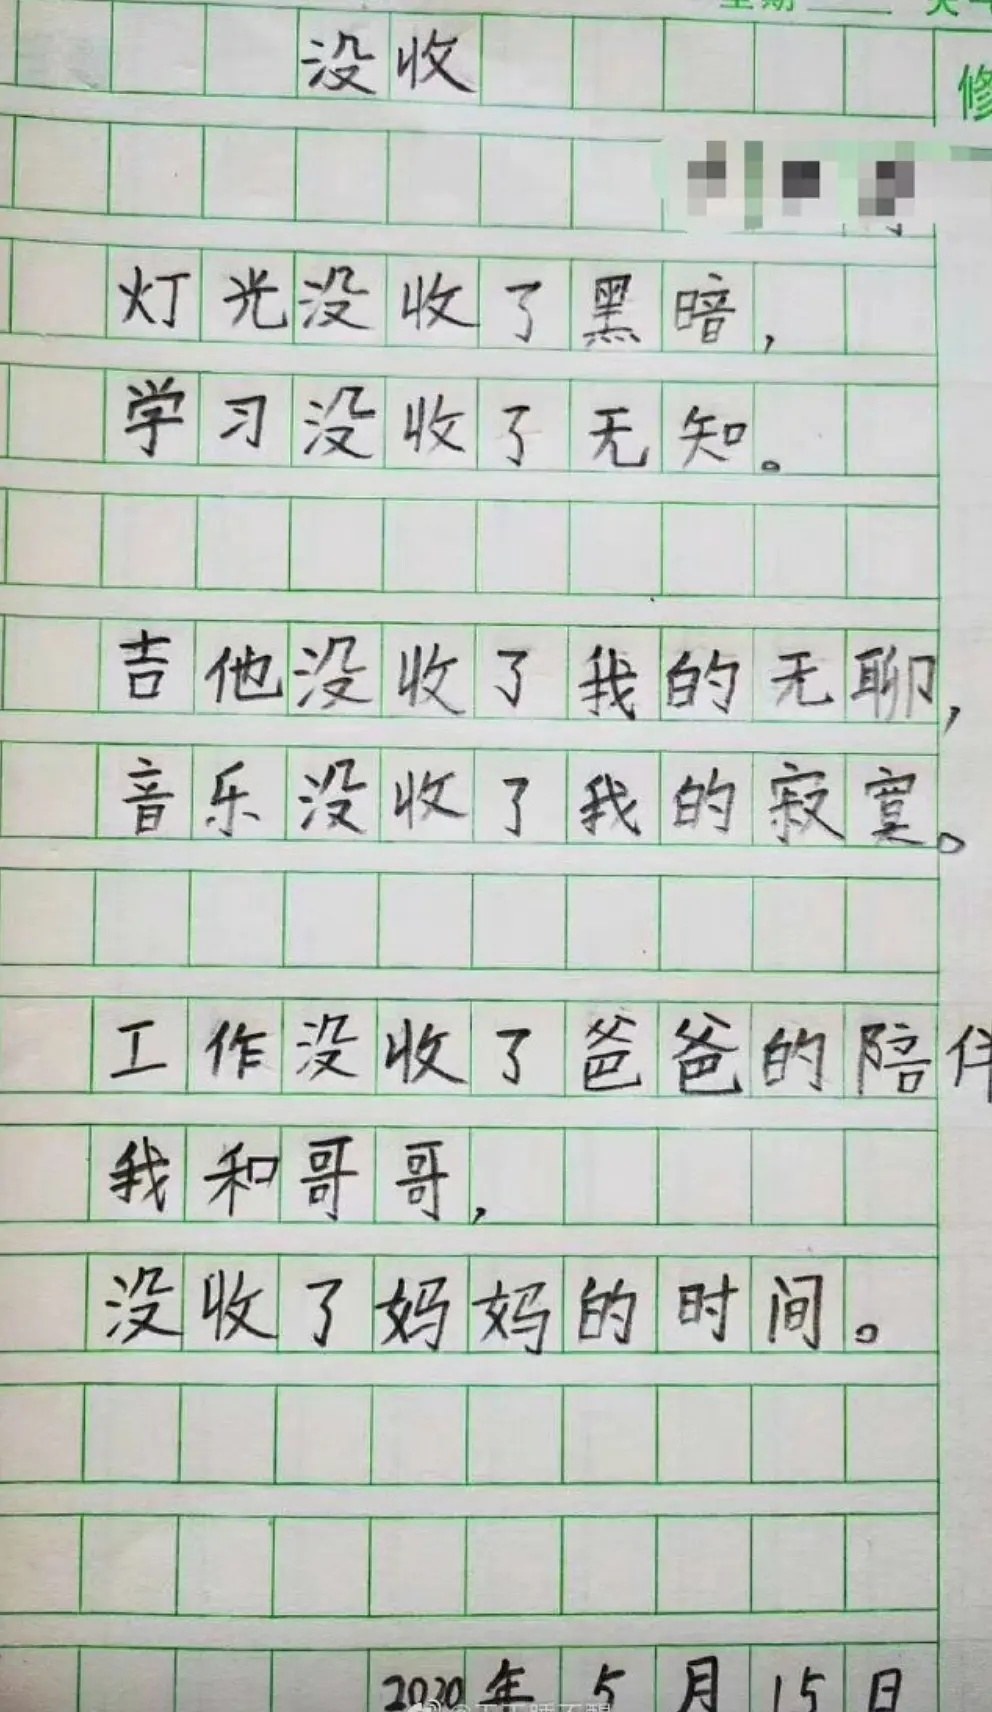 没收
灯光没收了黑暗，
学习没收了无知。
吉他没收了我的无聊，
音乐没收了我的寂寞。
工作没收了爸爸的陪伴
我和哥哥，
没收了妈妈的时间。
2020年5月15日